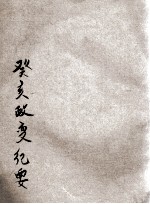 癸亥政变纪要